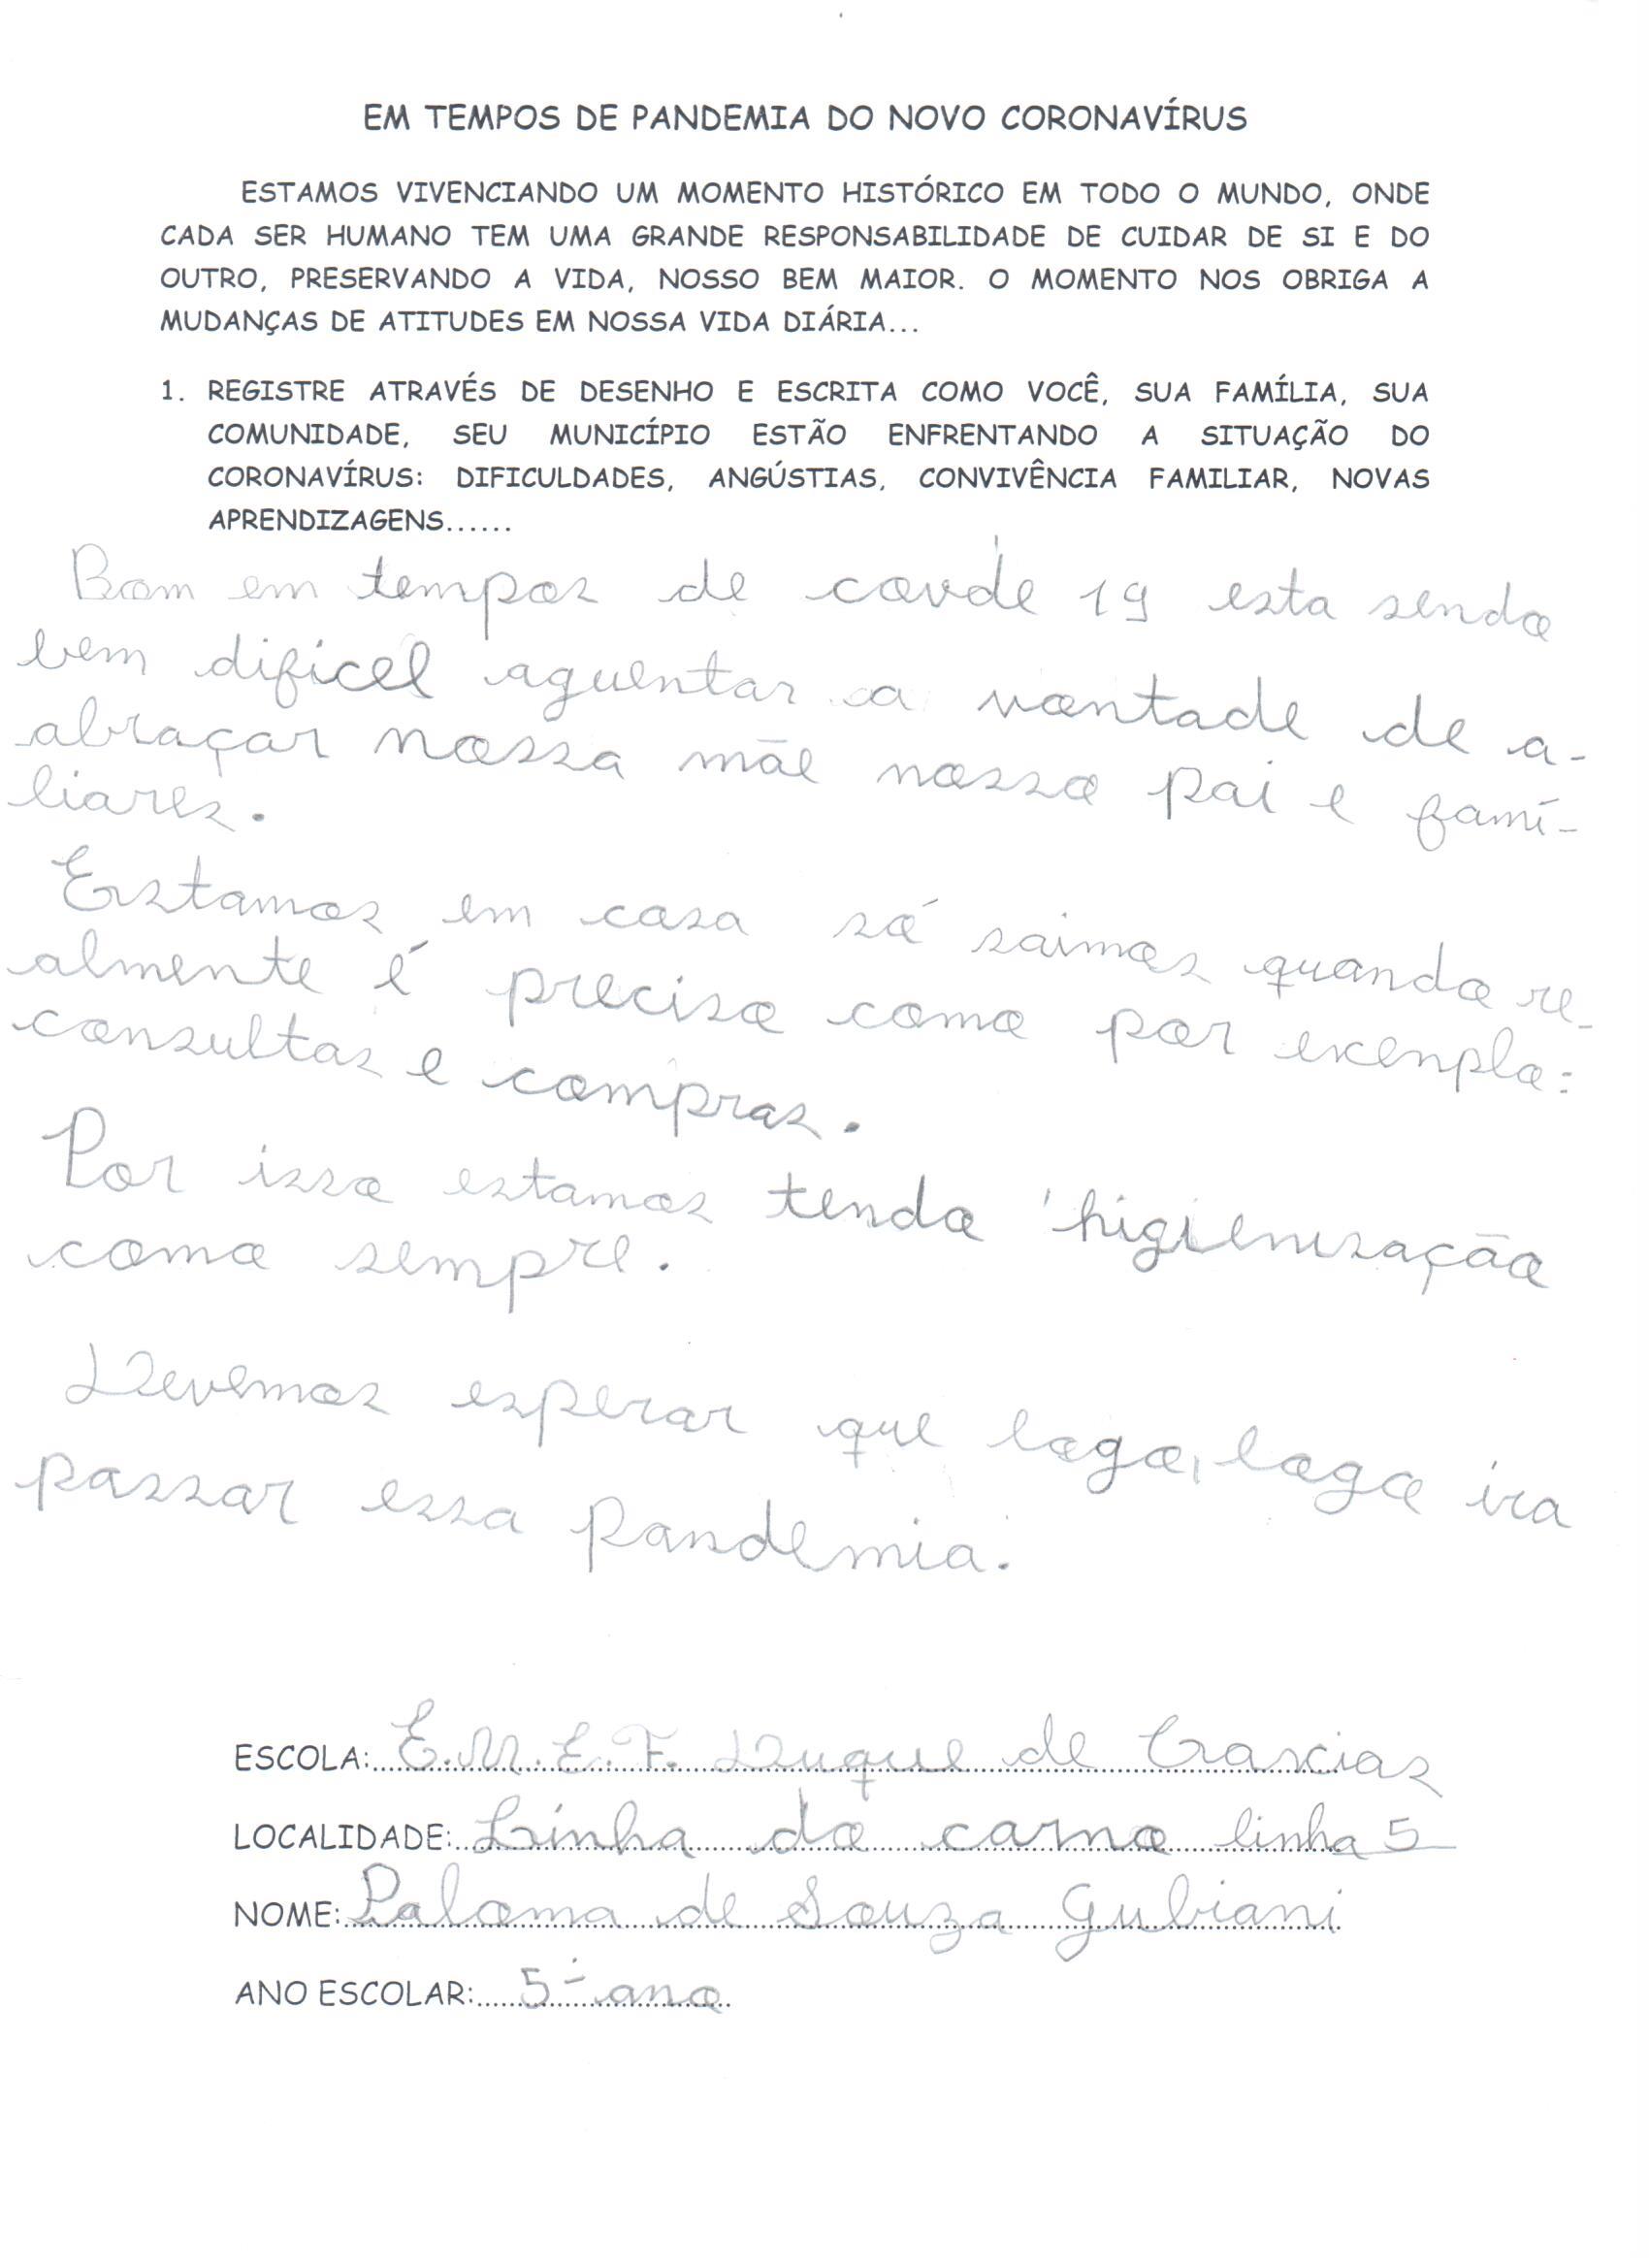 EM TEMPOS DE PANDEMIA DO NOVO CORONAVÍRUS
ESTAMOS VIVENCIANDO UM MOMENTO HISTÓRICO EM TODO O MUNDO, ONDE
CADA SER HUMANO TEM UMA GRANDE RESPONSABILIDADE DE CUIDAR DE SI E DO
OUTRO, PRESERVANDO A VIDA, NOSSO BEM MAIOR. O MOMENTO NOS OBRIGA A
MUDANÇAS DE ATITUDES EM NOSSA VIDA DIÁRIA...
1. REGISTRE ATRAVÉS DE DESENHO E ESCRITA COMO VOCÊ, SUA FAMÍLIA, SUA
COMUNIDADE, SEU MUNICÍPIO ESTÃO ENFRENTANDO A SITUAÇÃO DO
CORONAVÍRUS: DIFICULDADES, ANGÚSTIAS, CONVIVÊNCIA FAMILIAR, NOVAS
APRENDIZAGENS......
Bom em tempos de covde 19 esta sendo
bem dificel aguentar a vontade de a-
abraçar nossa mãe nosso pai e famí-
liares.
Estamos em casa só saimos quando re-
almente é preciso como por exenplo:
consultas e compras.
Por isso estamos tendo higienização
como sempre.
Devemos esperar que logo, logo ira
passar essa pandemia.
ESCOLA: E.M.E.F. Duque de Caxias
LOCALIDADE: Linha do carmo linha 5
NOME: Paloma de Souza Gubiani
ANO ESCOLAR: 5º ano